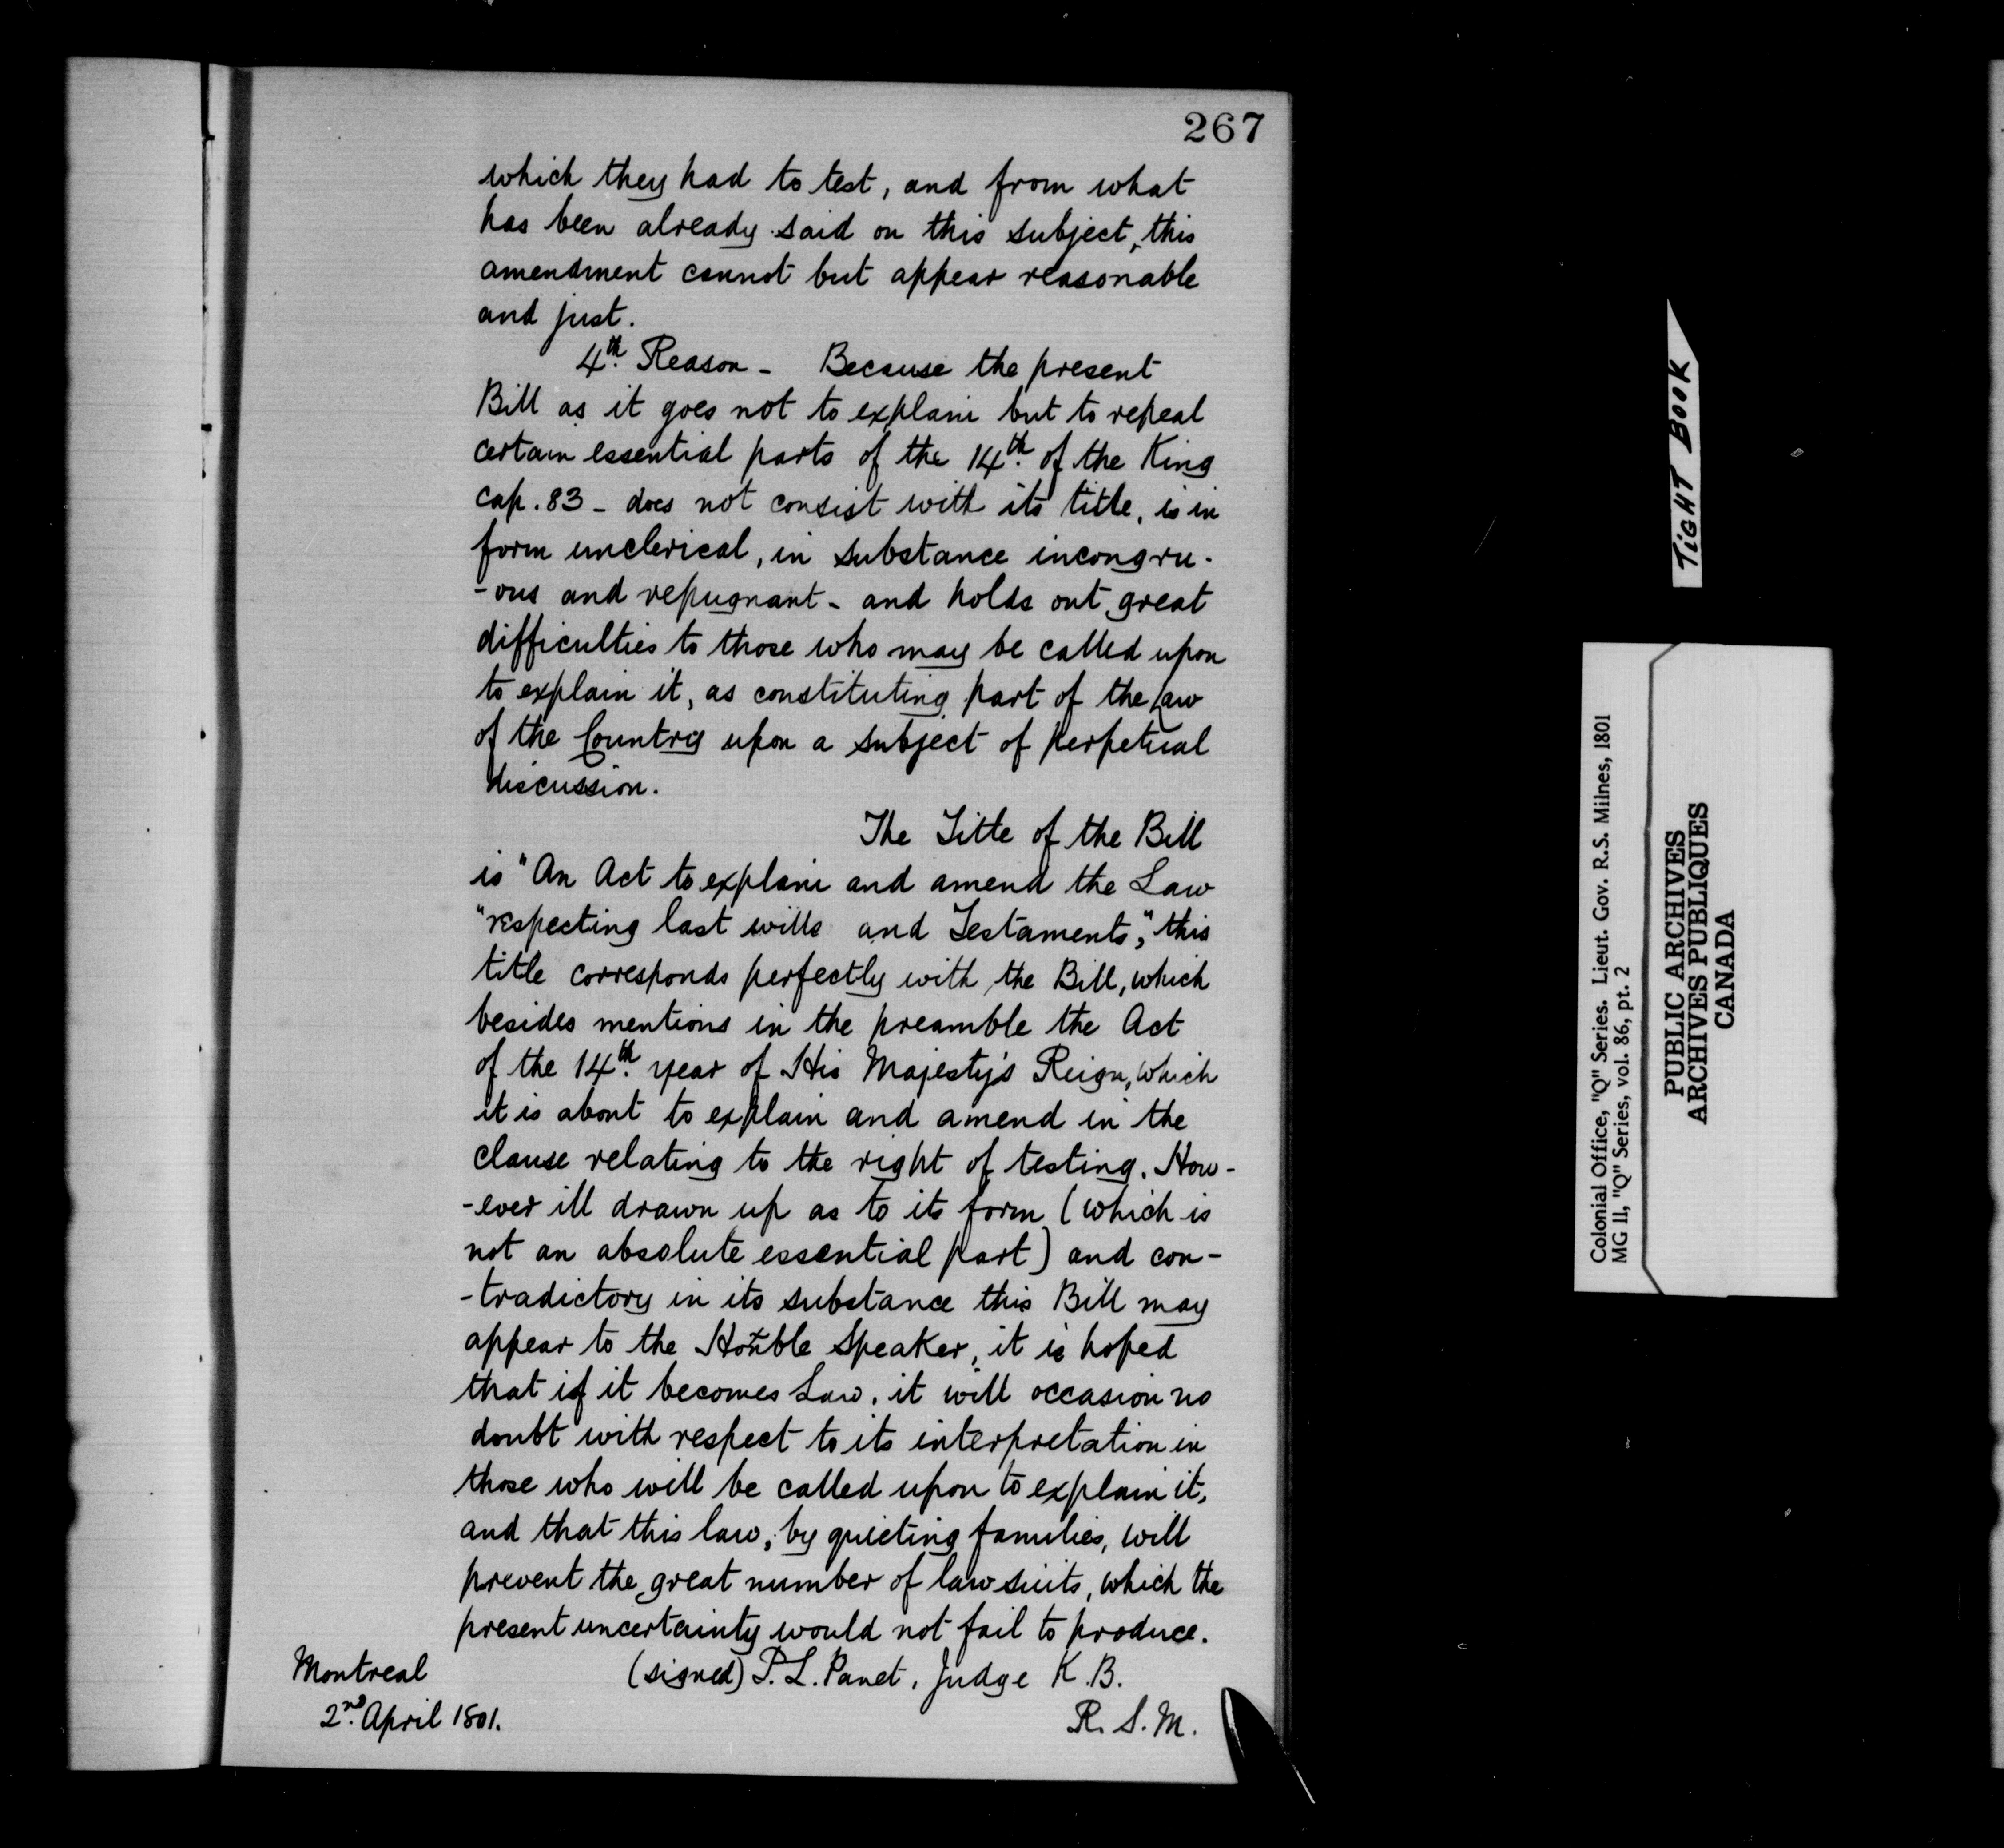 267
which they had to test, and from what
has been already said on this subject, this
amendment cannot but appear reasonable
and just.
4th. Reason - Because the present
Bill as it goes not to explain but to repeal
certain essential parts of the 14th. of the King
cap. 83 - does not consist with its title, is in
form unclerical, in substance incongru-
-ous and repugnant - and holds out great
difficulties to those who may be called upon
to explain it, as constituting part of the Law
of the Country upon a subject of perpetual
discussion.
The Title of the Bill
is "An Act to explain and amend the Law
"respecting last wills and Testaments," this
title corresponds perfectly with the Bill, which
besides mentions in the preamble the Act
of the 14th. year of His Majesty's Reign, which
it is about to explain and amend in the
clause relating to the right of testing. How-
-ever ill drawn up as to its form (which is
not an absolute essential part) and con-
-tradictory in its substance this Bill may
appear to the Honble Speaker, it is hoped
that if it becomes Law, it will occasion no
doubt with respect to its interpretation in
those who will be called upon to explain it,
and that this law, by quieting families, will
prevent the great number of law suits, which the
present uncertainty would not fail to produce.
Montreal (signed) P. L. Panet, Judge K. B.
2nd. April 1801. R. S. M.
TIGHT BOOK
Colonial Office, "Q" Series. Lieut. Gov. R.S. Milnes, 1801
MG 11, "Q" Series, vol. 86, pt. 2
PUBLIC ARCHIVES
ARCHIVES PUBLIQUES
CANADA